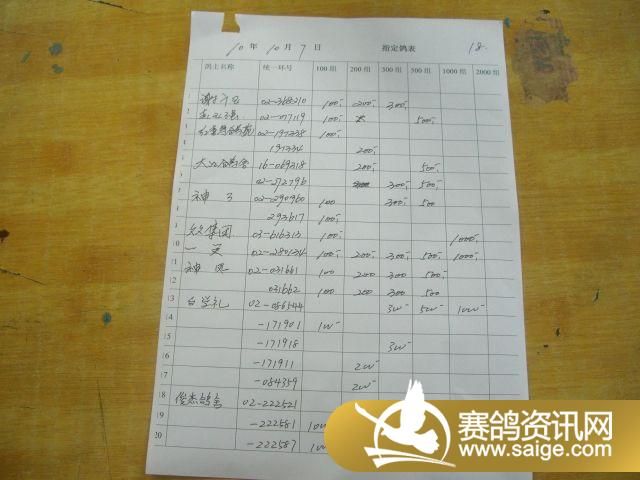 10年10月7日 指定鸽表 18.
鸽主名称 统一环号 100组 200组 300组 500组 1000组 2000组
02-368210 100 200 300
02-077119 100 500
02-197338 100
197334 200
16-069218 200 500
02-272796 300 500
神 02-0290960 100 300 500
293617 100
集团 03-616313 100 1000
一 02-280134 100 200 300 500 1000
神 02-031661 100 200 300 500
031662 100 200 300 500
13 白学礼 02-086144 3w 5w 10w
14 -171901 1w
15 -171918 3w
16 -171911 2w
17 -084359 2w
18 俊杰鸽舍 02-222521
19 -222581
20 -222587
赛鸽资讯网
www.saige.com